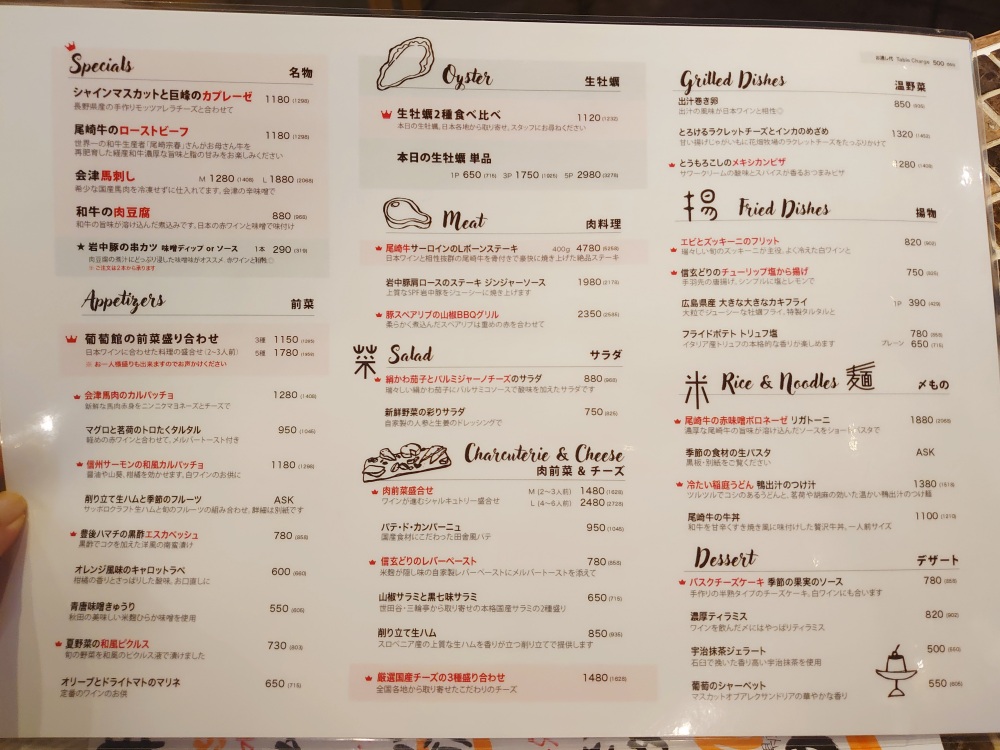 Specials 名物
シャインマスカットと巨峰のカプレーゼ 1180 (1298)
長野県産の手作りモッツァレラチーズと合わせて
尾崎牛のローストビーフ 1180 (1298)
世界一の和牛生産者「尾崎宗春」さんがお母さん牛を
再肥育した経産和牛濃厚な旨味と脂の甘みをお楽しみください
会津馬刺し M 1280 (1408) L 1880 (2068)
希少な国産馬肉を冷凍せずに仕入れてます。会津の辛味噌で
和牛の肉豆腐 880 (968)
和牛の旨味が溶け込んだ煮込みです。日本の赤ワインと味噌で味付け
★ 岩中豚の串カツ 味噌ディップ or ソース 1本 290 (319)
肉豆腐の煮汁にどっぷり浸した味噌味がオススメ 赤ワインと
※ ご注文は2本から承ります
Appetizers 前菜
葡萄館の前菜盛り合わせ 3種 1150 (1265)
日本ワインに合わせた料理の盛合せ(2~3人前) 5種 1780 (1958)
※ お一人様盛りも出来ますのでお声かけください
会津馬肉のカルパッチョ 1280 (1408)
新鮮な馬肉赤身をニンニクマヨネーズとチーズで
マグロと茗荷のトロたくタルタル 950 (1045)
軽めの赤ワインと合わせて、メルバトースト付き
信州サーモンの和風カルパッチョ 1180 (1298)
醤油や山葵、柑橘を効かせます。白ワインのお供に
削り立て生ハムと季節のフルーツ ASK
サッポロクラフト生ハムと旬のフルーツの組み合わせ、詳細は別紙です
豊後ハマチの黒酢エスカベッシュ 780 (858)
黒酢でコクを加えた洋風の南蛮漬け
オレンジ風味のキャロットラペ 600 (660)
柑橘の香りとさっぱりした酸味。お口直しに
青唐味噌きゅうり 550 (605)
秋田の美味しい米麹ひらか味噌を使用
夏野菜の和風ピクルス 730 (803)
旬の野菜を和風のピクルス液で漬けました
オリーブとドライトマトのマリネ 650 (715)
定番のワインのお供
Oyster 生牡蠣
生牡蠣2種食べ比べ 1120 (1232)
本日の生牡蠣、日本各地から取り寄せ。スタッフにお尋ねください
本日の生牡蠣 単品
1P 650 (715) 3P 1750 (1925) 5P 2980 (3278)
Meat 肉料理
尾崎牛サーロインのLボーンステーキ 400g 4780 (5258)
日本ワインと相性抜群の尾崎牛を骨付きで豪快に焼き上げた絶品ステーキ
岩中豚肩ロースのステーキ ジンジャーソース 1980 (2178)
上質なSPF岩中豚をジューシーに焼き上げます
豚スペアリブの山椒BBQグリル 2350 (2585)
柔らかく煮込んだスペアリブは重めの赤を合わせて
菜 Salad サラダ
絹かわ茄子とパルミジャーノチーズのサラダ 880 (968)
瑞々しい絹かわ茄子にバルサミコソースで酸味を加えたサラダです
新鮮野菜の彩りサラダ 750 (825)
自家製の人参と生姜のドレッシングで
Charcuterie & Cheese
肉前菜 & チーズ
肉前菜盛合せ M (2~3人前) 1480 (1628)
ワインが進むシャルキュトリー盛合せ L (4~6人前) 2480 (2728)
パテ・ド・カンパーニュ 950 (1045)
国産食材にこだわった田舎風パテ
信玄どりのレバーペースト 780 (858)
米麹が隠し味の自家製レバーペーストにメルバトーストを添えて
山椒サラミと黒七味サラミ 650 (715)
世田谷・三輪亭から取り寄せの本格国産サラミの2種盛り
削り立て生ハム 850 (935)
スロベニア産の上質な生ハムを香りが立つ削り立てで提供します
厳選国産チーズの3種盛り合わせ 1480 (1628)
全国各地から取り寄せたこだわりのチーズ
お通し代 Table Charge 500 (550)
Grilled Dishes 温野菜
出汁巻き卵 850 (935)
出汁の風味が日本ワインと相性◎
とろけるラクレットチーズとインカのめざめ 1320 (1452)
甘い揚げじゃがいもに花畑牧場のラクレットチーズをたっぷりかけて
とうもろこしのメキシカンピザ 1280 (1408)
サワークリームの酸味とスパイスが香るおつまみピザ
揚 Fried Dishes 揚物
エビとズッキーニのフリット 820 (902)
瑞々しい旬のズッキーニが主役。よく冷えた白ワインと
信玄どりのチューリップ塩から揚げ 750 (825)
手羽先の唐揚げ、シンプルに塩とレモンで
広島県産 大きな大きなカキフライ 1P 390 (429)
大粒でジューシーな牡蠣フライ、特製タルタルと
フライドポテト トリュフ塩 780 (858)
イタリア産トリュフの本格的な香りが楽しめます プレーン 650 (715)
米 Rice & Noodles 麺 〆もの
尾崎牛の赤味噌ボロネーゼ リガトーニ 1880 (2068)
濃厚な尾崎牛の旨味が溶け込んだソースをショートパスタで
季節の食材の生パスタ ASK
黒板・別紙をご覧ください
冷たい稲庭うどん 鴨出汁のつけ汁 1380 (1518)
ツルツルでコシのあるうどんと、茗荷や胡麻の効いた温かい鴨出汁のつけ麺
尾崎牛の牛丼 1100 (1210)
和牛を甘辛くすき焼き風に味付けした贅沢牛丼。一人前サイズ
Dessert デザート
バスクチーズケーキ 季節の果実のソース 780 (858)
手作りの半熟タイプのチーズケーキ、白ワインにも合います
濃厚ティラミス 820 (902)
ワインを飲んだ〆にはやっぱりティラミス
宇治抹茶ジェラート 500 (550)
石臼で挽いた香り高い宇治抹茶を使用
葡萄のシャーベット 550 (605)
マスカットオブアレクサンドリアの華やかな香り